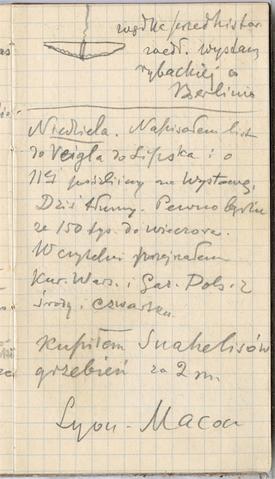 wędk. przedhistor
wedł. wystawy
rybackiej w
Berlinie
Niedziela. Napisałem list
do Veigla do Lipska i o
11½ poszliśmy na wystawę.
Dziś tłumy. Pewno będzie
ze 150 tys. do wieczora.
W czytelni przejrzałem
Kur. Wars. i Gaz. Pols. z
środy i czwartku.
Kupiłem Suahelisów
grzebień za 2 m.
Lyon - Macon